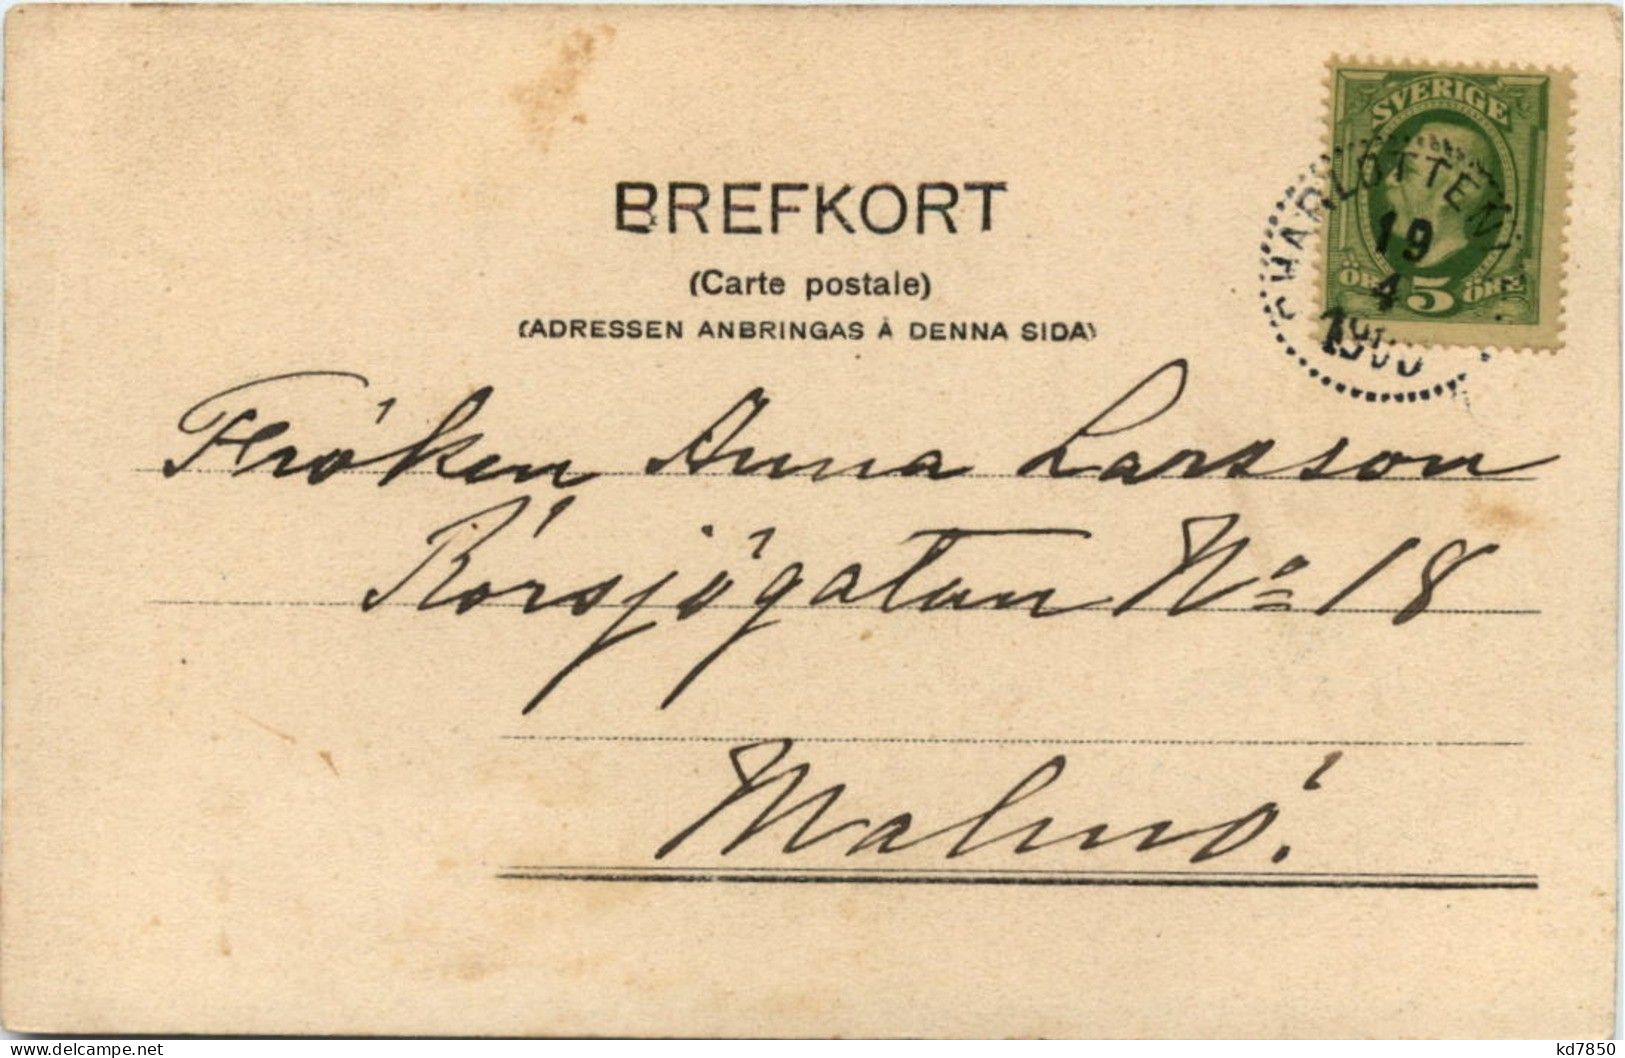 SVERIGE
ÖRE 5 ÖRE
CHARLOTTEN
19
4
BREFKORT
(Carte postale)
(ADRESSEN ANBRINGAS Å DENNA SIDA)
Fröken Anna Larsson
Rörsjögatan No 18
Malmö.
delcampe.net
kd7850